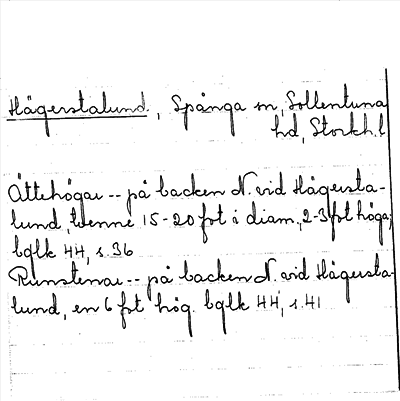 Hägerstalund, Spånga sn, Sollentuna
hd, Stockh. l
Ättehögar -- på backen N. vid Hägersta-
lund, tvenne 15-20 fot i diam., 2-3 fot höga,
bqlk 44, s. 36
Runstenar -- på backen N. vid Hägersta-
lund, en 6 fot hög. bqlk 44, s. 41